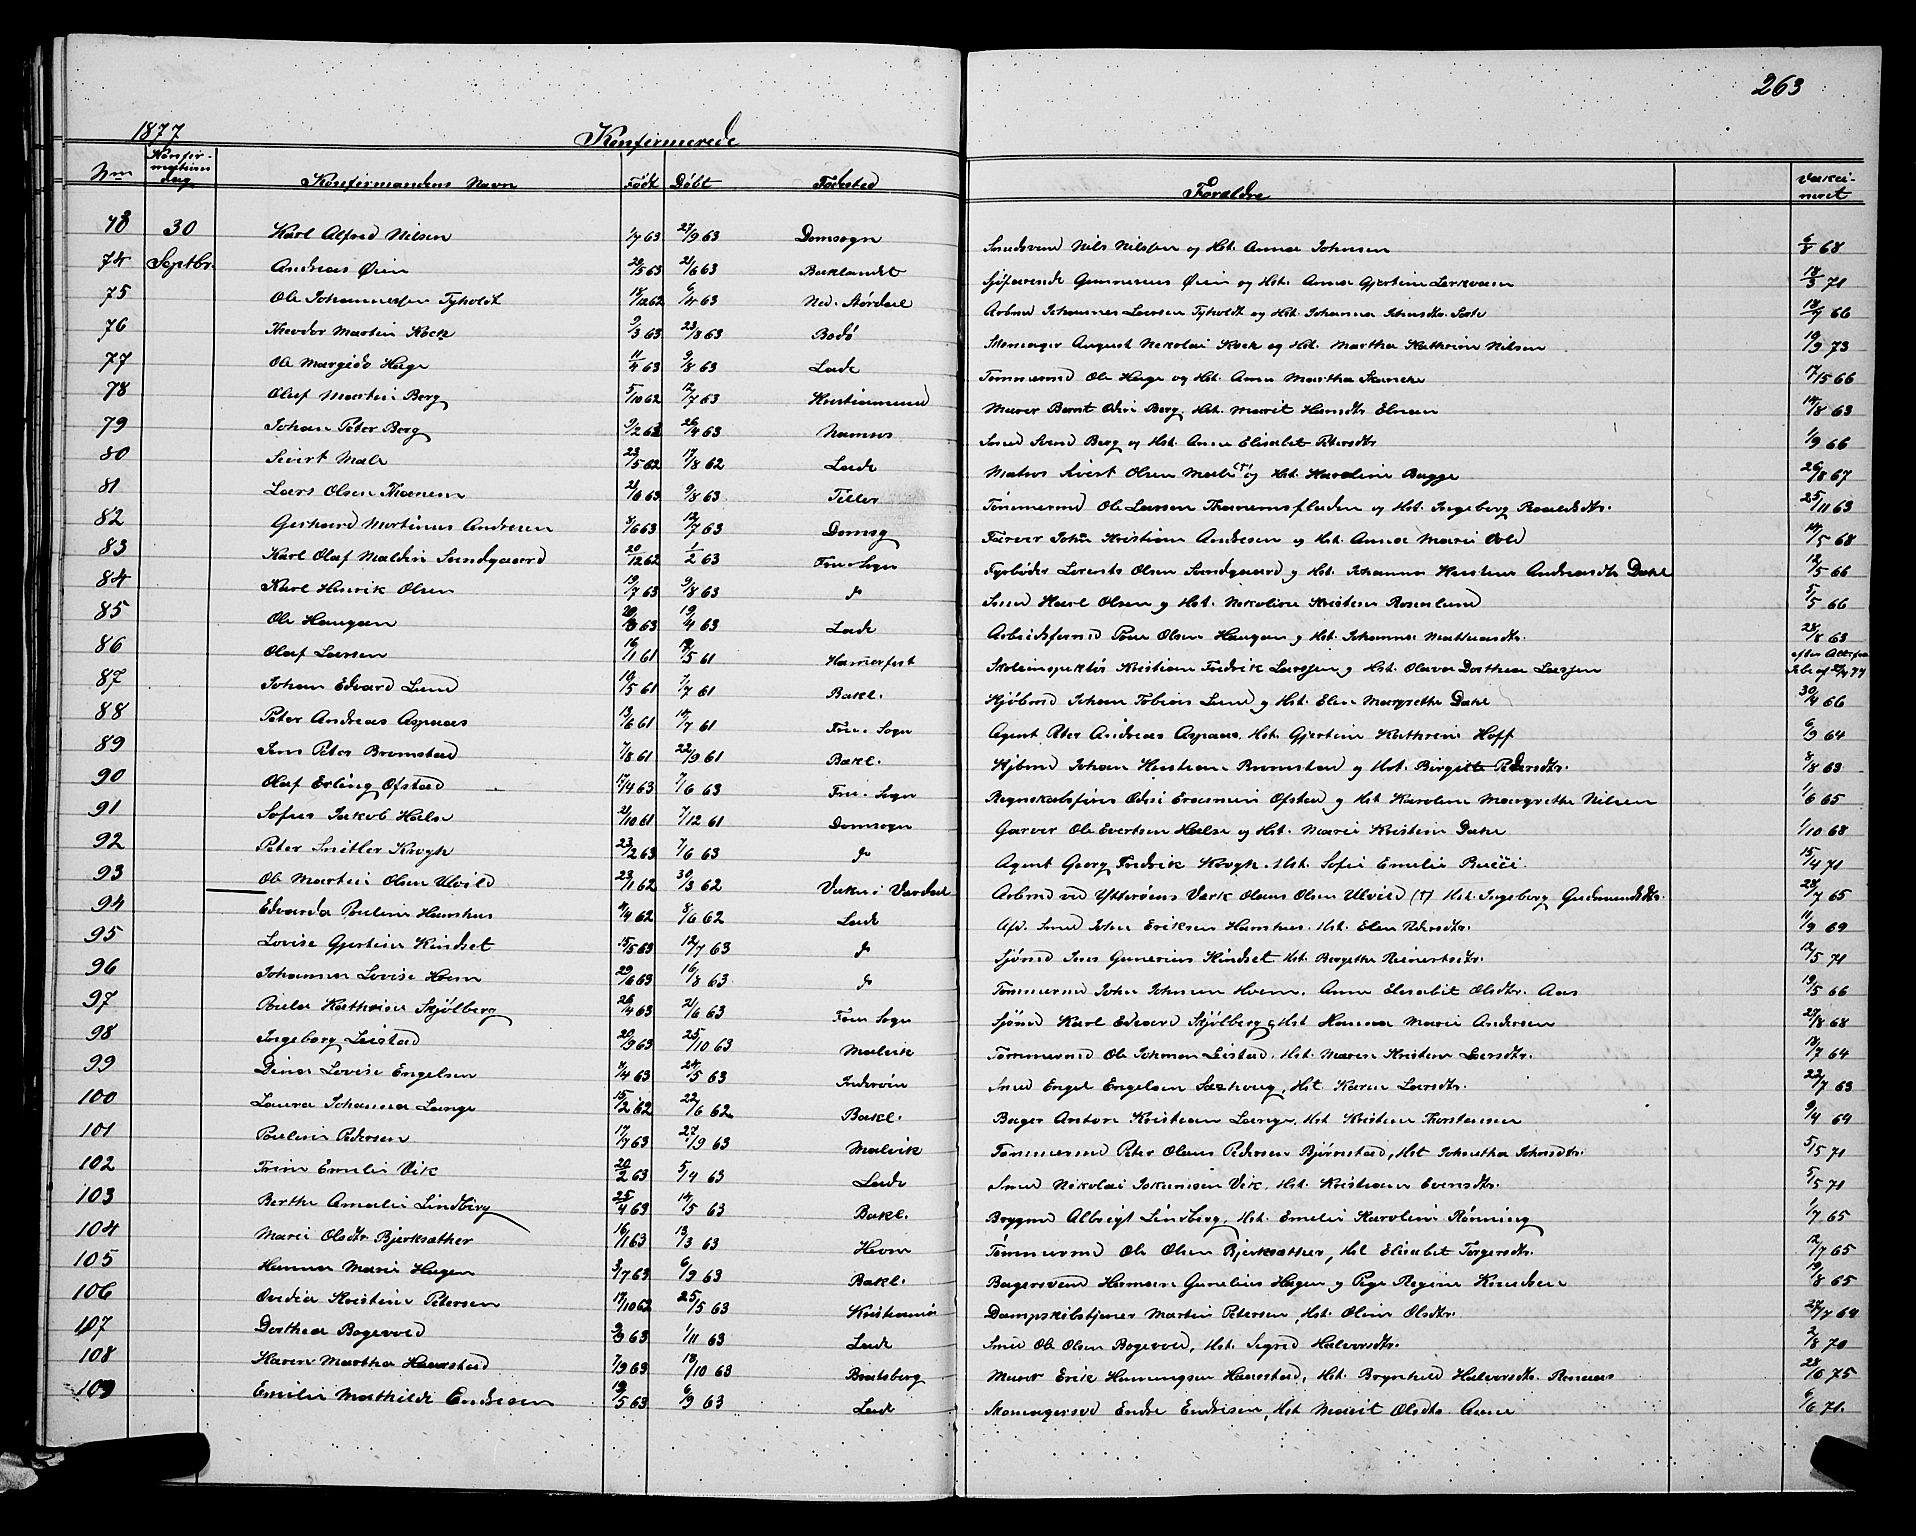 263
1877 Konfirmerede
Nm Konfirmations Dag Konfirmandens Navn Født Døbt Fødested Forældre Vakcineret
73 30 Karl Alfred Nilsen 1/7 63 27/9 63 Domsogn Smedsvend Nils Nilssen og Hst. Anna Johnsen 6/8 68
74 Septbr. Andreas Øien 20/5 63 21/6 63 Baklandet Sjøfarende Gunnerius Øien og Hst. Anna Gjertine Lerkvam 18/3 71
75 Ole Johannessen Tyholdt 18/12 62 6/4 63 Ned. Størdal Arbmd Johannes Larsen Tyholdt og Hst. Johanna Johnsdtr. 18/7 66
76 Theodor Martin Kock 9/3 63 23/8 63 Bodø Skomager August Nikolai Kock og Hst. Martha Kathrine Nilsen 19/9 73
77 Ole Margido Hage 11/4 63 9/8 63 Lade Tømmermd Ole Hage og Hst. Anna Martha Skancke 7/5 66
78 Oluf Martin Berg 5/10 62 12/7 63 Kristiansund Murer Bernt Odin Berg, Hst. Marit Hansdtr. 14/8 63
79 Johan Peter Berg 9/2 63 26/4 63 Namsos Smed Svend Berg og Hst. Anne Elisabet Petersdtr. 1/9 66
80 Sivert Male 23/5 62 17/8 62 Lade Matros Sivert Olsen Male (†) og Hst. Karoline Bugge 26/8 67
81 Lars Olsen Thanem 21/6 63 9/8 63 Tiller Tømmermd Ole Larsen Thanemsfladen og Hst. Ingeborg Roaldsdtr. 25/11 63
82 Gerhard Martinus Andresen 8/6 63 12/7 63 Domsg Farver John Kristian Andresen og Hst. Anna Marie 14/5 68
83 Karl Olaf Maldin Sundgaard 20/12 62 1/2 63 Frue-Sogn Fyrbøder Lorents Olsen Sundgaard og Hst. Johanna Kristine Andreasdtr. Dahl 12/5 66
84 Karl Henrik Olsen 19/7 63 9/8 63 do Smed Karl Olsen og Hst. Nikoline Kristine Rosenlund 5/5 66
85 Ole Haugan 63 19/4 63 Lade Arbeidsformd Peter Olsen Haugan og Hst. Johanna 28/8 63
86 Olaf Larsen 16/11 61 /5 61 Hamerfest Skoleinspektør Kristian Fredrik Larssen og Hst. Olava Dorthea Larssen efter
87 Johan Edvard Lund 19/5 61 /7 61 Bakl. Kjøbmd Johan Tobias Lund og Hst. Elen Margrethe Dahl 30/4 66
88 Peter Andreas Aspaas 13/6 61 14/7 61 Frue-Sogn Agent Peter Andreas Aspaas, Hst. Gjertine Kathrine Hoff 6/9 64
89 Jens Peter Bromstad 7/8 61 22/9 61 Bakl. Kjbmd Johan Kristian Bromstad og Hst. Birgitte Pedersdtr. 8/8 63
90 Olaf Erling Ofstad 17/4 63 7/6 63 Frue-Sogn Regnskabsfører Odin Erasmin Ofstad og Hst Karoline Margrethe Nilsen 1/6 65
91 Sofus Jakob Halse 21/10 61 7/12 61 Domsogn Garver Ole Evertsen Halse og Hst. Marie Kristine Dahl 1/10 68
92 Peter Snitler Krogh 23/2 63 7/6 63 do Agent Georg Fredrik Krogh. Hst. Sofie Emelie 15/4 71
93 Ole Martin Olsen Ulvild 23/1 62 30/3 62 Vuku i Værdal Arbmd ved Ytterøens Værk Olaus Olsen Ulvild (†) Hst. Ingeborg Gudmundsdtr. 28/7 65
94 Edvarda Pauline Hanshus 4/4 62 8/6 62 Lade Afd. Smed Johan Eriksen Hanshus. Hst. Elen Pedersdtr. 11/9 69
95 Lovise Gjertine Kindset 15/5 63 12/7 63 do Sjømd Jens Gunerius Kindset Hst. Bergitta Reinertsdtr. 12/5 71
96 Johanna Lovise Hoem 29/6 63 16/8 63 do Tømmermd John Johnsen Hoem. Anna Elisabet Olsdtr. Aas 19/5 66
97 Paula Kathrine Skjølberg 26/4 63 21/6 63 Frue Sogn Sjømd Karl Edvard Skjølberg, Hst Hanna Marie Andersen 27/8 68
98 Ingeborg Leistad 20/9 63 25/10 63 Malvik Tømmermd Ole Johnsen Leistad. Hst. Maren Kristine Larsdtr. 12/7 64
99 Dina Lovise Engelsen 9/4 63 24/5 63 Inderøen Smed Engel Engelsen Saxhaug, Hst Karen Larsdtr. 22/7 63
100 Laura Johanna Lange 15/2 62 22/6 62 Bakl. Bager Anton Kristian Lange, Hst Kristine Thorstensen 9/4 64
101 Pauline Pedersen 17/7 63 27/9 63 Malvik Tømmermd Peter Olaus Pedersen Bjørnstad, Hst Johnetha Johnsdtr. 5/5 71
102 Trine Emelie Vik 20/2 63 5/4 63 Lade Smed Nikolai Johansen Vik, Hst. Kristiane Evensdtr. 5/5 71
103 Berthe Amalie Lindberg 25/4 63 14/5 63 Bakl. Brygmd Albrigt Lindberg, Hst. Emelie Karoline Rønning 1/7 65
104 Marie Olsdtr Bjerksæther 16/1 63 13/3 63 Hevne Tømmermd Ole Olsen Bjerksæther, Hst Elisabet Torgersdtr. 12/7 65
105 Hanna Marie Hagen 3/7 63 6/9 63 Bakl. Bagersvend Herman Gunelius Hagen og Pige Regine Knudsen 19/8 65
106 Ovedia Kristine Petersen 17/10 62 25/5 63 Kristiania Dampskibstjener Martin Petersen, Hst. Oline Olsdtr. 27/7 64
107 Dorthea Bogevold 63 1/11 63 Lade Smed Ole Olsen Bogevold, Hst. Sigrid Halvorsdtr. 2/8 70
108 Karen Martha Haarstad 7/9 63 18/10 63 Bratsberg Murer Erik Hemmingsen Haarstad, Hst. Brynhild Halvorsdtr. 28/6 75
109 Emilie Mathilde Endresen 19/5 63 6/9 63 Lade Skomagersvd Endre Endresen, Hst Marit Olsdtr. 6/6 71.